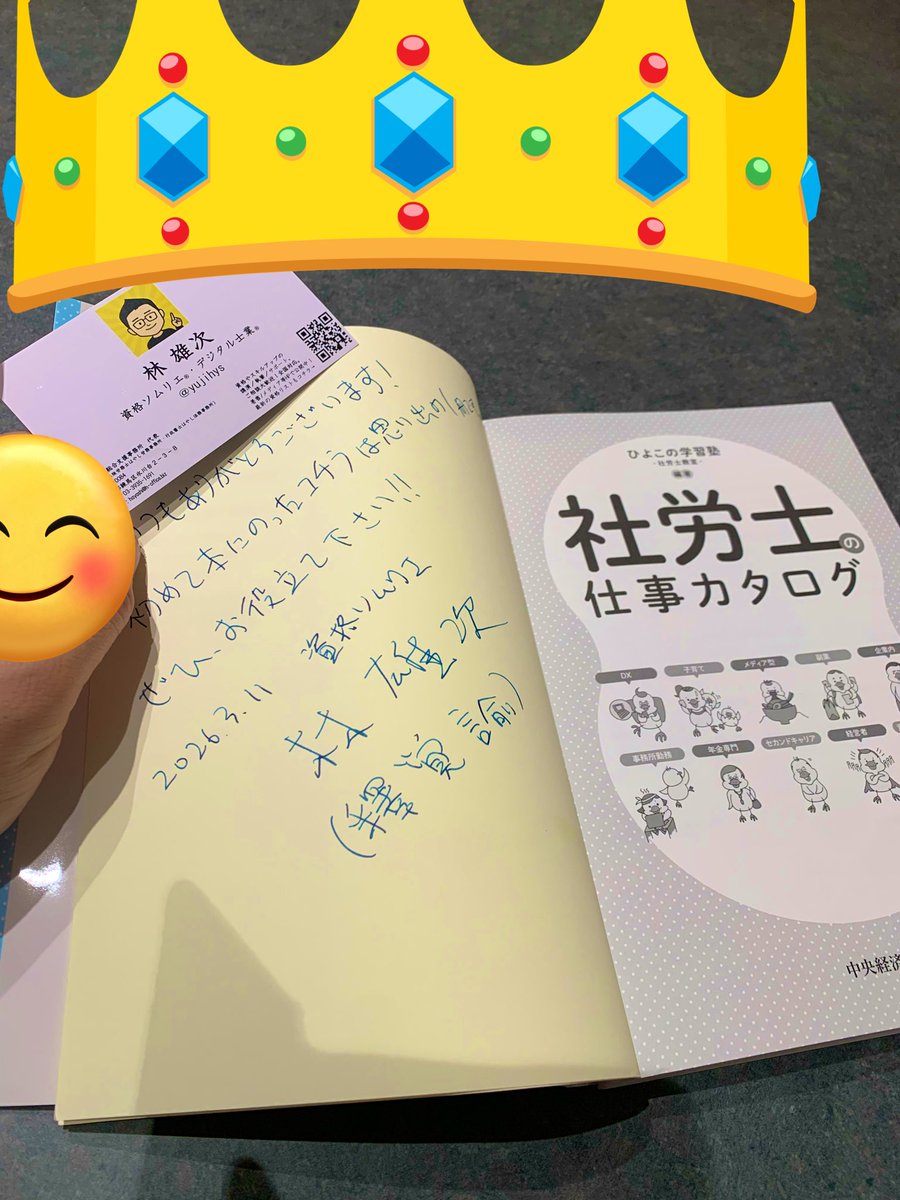 林 雄次
資格ソムリエ®・デジタル士業®
@yujihys
総合支援事務所 代表
2-3-8
03-3955-1691
つもありがとうございます!
初めて本にのったコチラは思い出の
ぜひ、お役立て下さい!!
2026.3.11 資格ソムリエ
林 雄次
ひよこの学習塾
-社労士教室-
編著
社労士の
仕事カタログ
DX
子育て
メディア型
副業
企業内
事務所勤務
年金専門
セカンドキャリア
経営者
中央経済